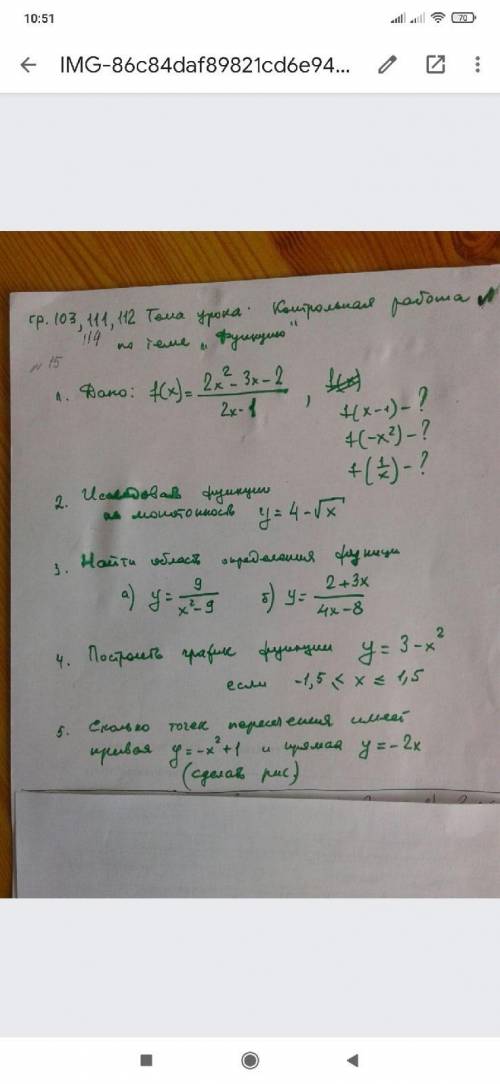 10:51
70
IMG-86c84daf89821cd6e94...
гр. 103, 111, 112 Тема урока: Контрольная работа
119 по теме „Функцию"
№ 15
1. Дано: f(x) = (2x² - 3x - 2)/(2x - 1) , f(x)
f(x-1) - ?
f(-x²) - ?
f(1/x) - ?
2. функцию
на y = 4 - √x
3. Найти область определения функции
а) y = 9/(x² - 9) б) y = (2 + 3x)/(4x - 8)
4. Построить график функции y = 3 - x²
если -1,5 ≤ x ≤ 1,5
5. Сколько точек пересечения имеет
кривая y = -x² + 1 и прямая y = -2x
(сделав рис)